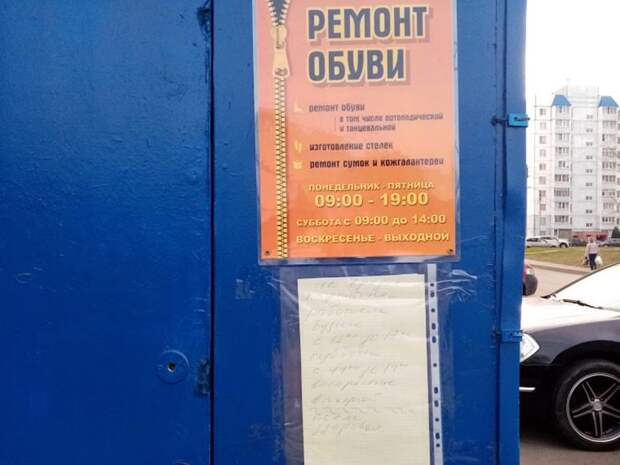 РЕМОНТ
ОБУВИ
ремонт обуви
в том числе ортопедической
и танцевальной
изготовление стелек
ремонт сумок и кожгалантереи
ПОНЕДЕЛЬНИК - ПЯТНИЦА
09:00 - 19:00
СУББОТА С 09:00 ДО 14:00
ВОСКРЕСЕНЬЕ - ВЫХОДНОЙ
работаем
будни
воскресение
выходной
здоровы